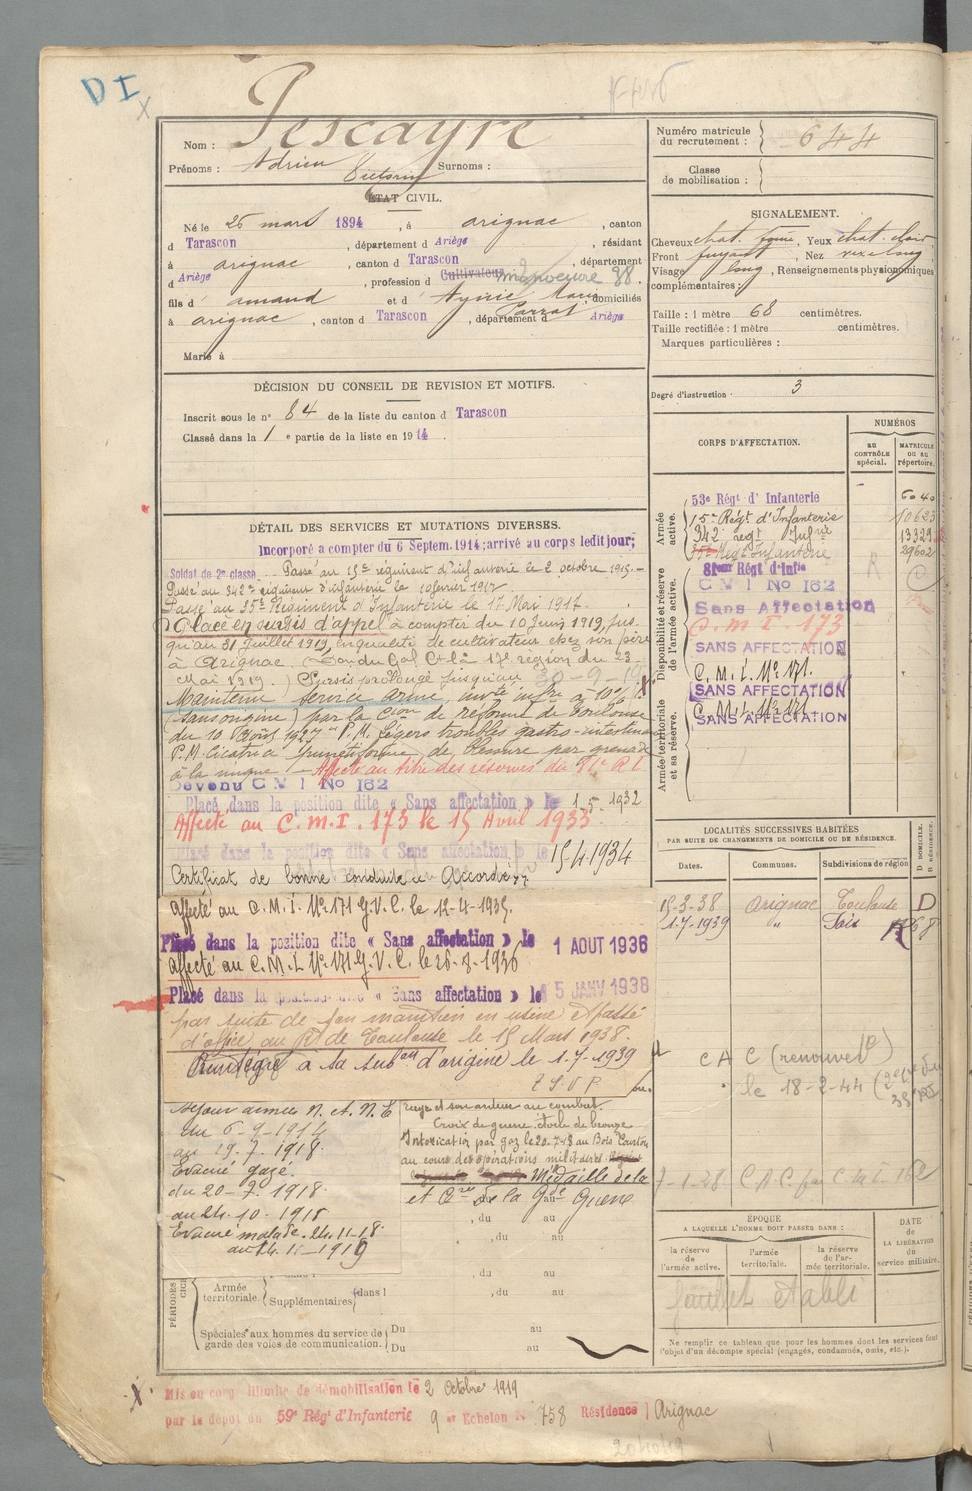 DI
Nom : Pescayre
Prénoms : Adrien Victorin Surnoms :
ÉTAT CIVIL.
Né le 25 mars 1894, à arignac, canton
d Tarascon, département d Ariège, résidant
à arignac, canton d Tarascon, département
d Ariège, profession d Cultivateur manoeuvre 38.
fils d' amand et d' Aynié Marie domiciliés
à arignac, canton d Tarascon, département d Ariège
Marié à
DÉCISION DU CONSEIL DE REVISION ET MOTIFS.
Inscrit sous le n° 84 de la liste du canton d Tarascon
Classé dans la 1 e partie de la liste en 1914.
DÉTAIL DES SERVICES ET MUTATIONS DIVERSES.
Incorporé a compter du 6 Septem. 1914; arrivé au corps ledit jour;
Soldat de 2e classe. Passé au 15e régiment d'infanterie le 2 octobre 1915.
Passé au 342e régiment d'infanterie le 10 février 1917
Passé au 35e Régiment d'Infanterie le 17 Mai 1917.
Placé en sursis d'appel à compter du 10 Juin 1919, jus-
qu'au 31 Juillet 1919, en qualité de cultivateur chez son père
à Arignac (Don du Gal Ct la 17e région du 23
Mai 1919.) Sursis prolongé jusqu'au 30-9-19
Maintenu service armé, invté infre à 10%
(sans origine) par la Cion de réforme de Toulouse
du 10 Août 1927 P.M. légers troubles gastro-intestinaux
P.M. Cicatrice punctiforme de blessure par grenade
à la nuque - Affecté au titre des réserves du 81e R I
Devenu C M I No 162
Placé dans la position dite « Sans affectation » le 1-5-1932
Affecté au C.M.I. 173 le 15 Avril 1933
Placé dans la position dite « Sans affectation » le 15-4-1934
Certificat de bonne conduite Accordé
Affecté au C.M.I. No 171 G.V.C. le 12-4-1935.
Placé dans la position dite « Sans affectation » le 1 AOUT 1936
Affecté au C.M.I. No 171 G.V.C. le 20-8-1936
Placé dans la position dite « Sans affectation » le 15 JANV 1938
par suite de son maintien en usine Passé
d'office au de Toulouse le 15 Mars 1938.
Réintégré à sa subon d'origine le 1-7-1939
T.S.V.P.
Séjour armée N. et N.E
du 6-9-1914
au 19.7.1918.
Evacué gazé.
du 20-7.1918.
au 24.10.1918
Evacué malade. 24.11-18.
au 14.11-1919
et son ardeur au combat.
Croix de guerre. étoile de bronze
Intoxication par gaz le 20-7-18 au Bois Courton
au cours des opérations militaires
Médaille de la
et de la Gde Guerre
, du au
, du au
, du au
, du au
PÉRIODES
Armée territoriale. Supplémentaires (dans l , du au
Spéciales aux hommes du service de garde des voies de communication. Du au
Du au
Mis en congé illimité de démobilisation le 2 Octobre 1919
par le dépôt du 59e Rég' d'Infanterie 9 e Echelon No 758 Résidence Arignac
Numéro matricule du recrutement : 644
Classe de mobilisation :
SIGNALEMENT.
Cheveux chat. foncé, Yeux chat. clair,
Front fuyant, Nez
Visage long, Renseignements physionomiques
complémentaires :
Taille : 1 mètre 68 centimètres.
Taille rectifiée : 1 mètre centimètres.
Marques particulières :
Degré d'instruction · 3
CORPS D'AFFECTATION.
NUMÉROS
AU CONTRÔLE spécial.
MATRICULE OU AU répertoire.
Armée active.
53e Régt d' Infanterie 6040
15e Régt d'Infanterie 10623
342 regt Infrie 13329
35e Regt Infanterie 29602
Disponibilité et réserve de l'armée active.
81eme Régt d'Infie
C M I 162
Sans Affectation
C. M. I. 173
SANS AFFECTATION
C. M. I. No 171.
Armée territoriale et sa réserve.
SANS AFFECTATION
C. M. I. No 171.
SANS AFFECTATION
LOCALITÉS SUCCESSIVES HABITÉES
PAR SUITE DE CHANGEMENTS DE DOMICILE OU DE RÉSIDENCE.
Dates. Communes. Subdivisions de région D DOMICILE. R RÉSIDENCE.
15-3-38 Arignac Toulouse D
1.7-1939 " Foix R 68
C A C (renouvelé)
le 18-2-44
7-1-28 C.A.C. par C.M.I-162
ÉPOQUE
A LAQUELLE L'HOMME DOIT PASSER DANS :
la réserve de l'armée active.
l'armée territoriale.
la réserve de l'armée territoriale.
DATE DE LA LIBÉRATION du service militaire.
feuillet établi
Ne remplir ce tableau que pour les hommes dont les services font l'objet d'un décompte spécial (engagés, condamnés, omis, etc.).